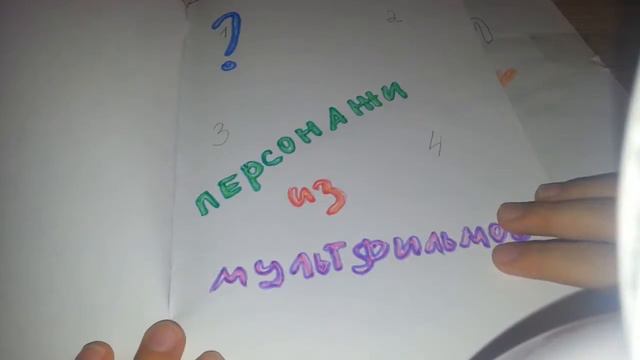 ? 1 2
3 4
ПЕРСОНАЖИ
ИЗ
МУЛЬТФИЛЬМОВ